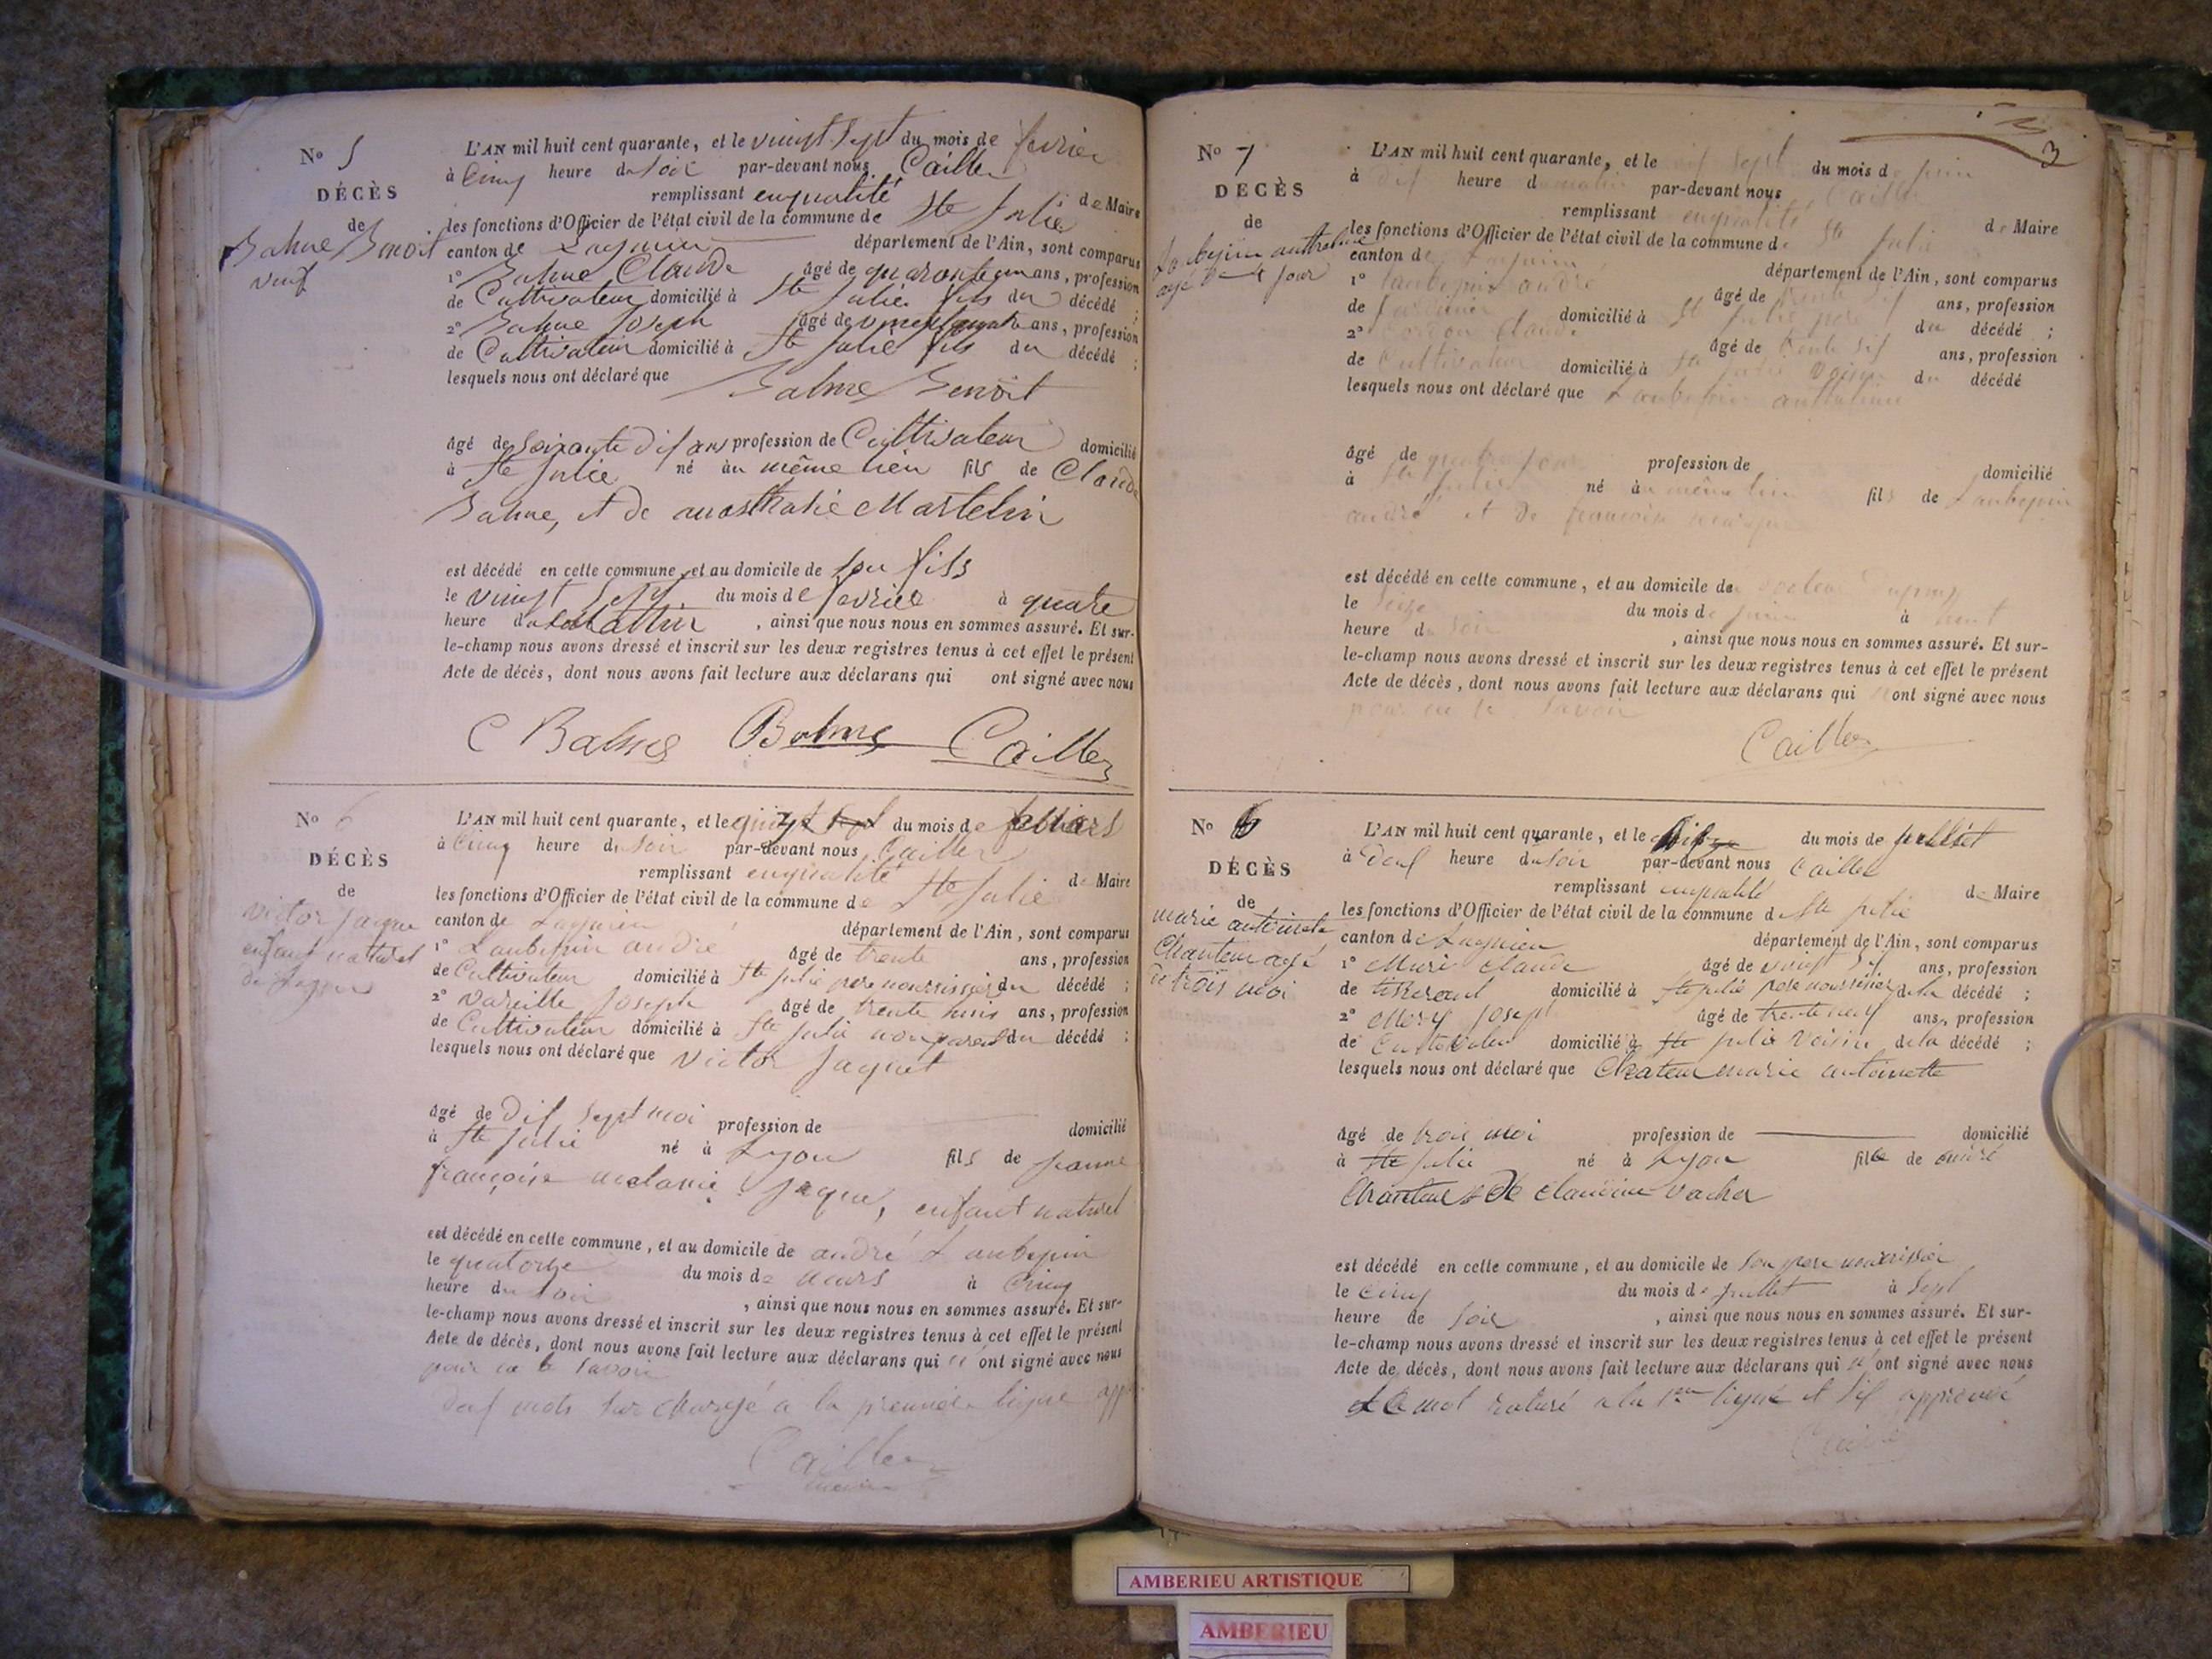 No 5
DÉCÈS
de
Balme Benoit
veuf
L'AN mil huit cent quarante, et le vingt sept du mois de fevrier
à Cinq heure du soir par-devant nous Caillet
remplissant enqualité de Maire
les fonctions d'Officier de l'état civil de la commune de Ste Julie
canton de Lagnieu département de l'Ain, sont comparus
1° Balme Claude âgé de quarante un ans, profession
de Cultivateur domicilié à Ste Julie fils du décédé ;
2° Balme Joseph âgé de vingt quatre ans, profession
de Cultivateur domicilié à Ste Julie fils du décédé ;
lesquels nous ont déclaré que Balme Benoit
âgé de soixante dix ans profession de Cultivateur domicilié
à Ste Julie né au même lieu fils de Claude
Balme, et de Martelin
est décédé en cette commune, et au domicile de son fils
le vingt sept du mois de fevrier à quatre
heure du mattin, ainsi que nous nous en sommes assuré. Et sur-
le-champ nous avons dressé et inscrit sur les deux registres tenus à cet effet le présent
Acte de décès, dont nous avons fait lecture aux déclarans qui ont signé avec nous
C Balme Balme Caillet
No 6
DÉCÈS
de
Victor Jaque
enfant naturel
L'AN mil huit cent quarante, et le du mois de mars
à Cinq heure du soir par-devant nous Caillet
remplissant enqualité de Maire
les fonctions d'Officier de l'état civil de la commune de Ste Julie
canton de Lagnieu département de l'Ain, sont comparus
1° Laubepin andré âgé de trente ans, profession
de Cultivateur domicilié à Ste Julie pere nourrissier du décédé ;
2° Vareille Joseph âgé de trente ans, profession
de Cultivateur domicilié à Ste Julie non parent du décédé ;
lesquels nous ont déclaré que Victor Jaquet
âgé de dix sept moi profession de domicilié
à Ste Julie né à Lyon fils de jeanne
françoise melanie Jaque, enfant naturel
est décédé en cette commune, et au domicile de andré Laubepin
le quatorze du mois de mars à Cinq
heure du soir, ainsi que nous nous en sommes assuré. Et sur-
le-champ nous avons dressé et inscrit sur les deux registres tenus à cet effet le présent
Acte de décès, dont nous avons fait lecture aux déclarans qui n'ont signé avec nous
pour ne le savoir
deux mots sur chargé a la premiere ligne app
Caillet
maire
3
No 7
DÉCÈS
de
Laubepin
agé de 4 jour
L'AN mil huit cent quarante, et le dix sept du mois de juin
à dix heure du matin par-devant nous Caillet
remplissant enqualité de Maire
les fonctions d'Officier de l'état civil de la commune de Ste Julie
canton de Lagnieu département de l'Ain, sont comparus
1° laubepin andré âgé de trente six ans, profession
de domicilié à Ste Julie pere du décédé ;
2° Claude âgé de trente six ans, profession
de Cultivateur domicilié à Ste Julie voisin du décédé
lesquels nous ont déclaré que Laubepin
âgé de quatre jour profession de domicilié
à Ste Julie né au même lieu fils de Laubepin
andré et de françoise
est décédé en cette commune, et au domicile de
le seize du mois de juin à huit
heure du soir, ainsi que nous nous en sommes assuré. Et sur-
le-champ nous avons dressé et inscrit sur les deux registres tenus à cet effet le présent
Acte de décès, dont nous avons fait lecture aux déclarans qui n'ont signé avec nous
pour ne le savoir
Caillet
No
DÉCÈS
de
marie antoinette
Chanteur agé
de trois moi
L'AN mil huit cent quarante, et le six du mois de juillet
à deux heure du soir par-devant nous Caillet
remplissant enqualité de Maire
les fonctions d'Officier de l'état civil de la commune de Ste Julie
canton de Lagnieu département de l'Ain, sont comparus
1° Claude âgé de vingt six ans, profession
de tisserand domicilié à Ste Julie pere nourrissier de la décédé ;
2° Joseph âgé de trente neuf ans, profession
de domicilié à Ste Julie voisin de la décédé ;
lesquels nous ont déclaré que Chateur marie antoinette
âgé de trois moi profession de domicilié
à Ste Julie né à Lyon fille de andré
Chanteur et de claudine vacher
est décédé en cette commune, et au domicile de son pere nourrissier
le cinq du mois de juillet à sept
heure de soir, ainsi que nous nous en sommes assuré. Et sur-
le-champ nous avons dressé et inscrit sur les deux registres tenus à cet effet le présent
Acte de décès, dont nous avons fait lecture aux déclarans qui n'ont signé avec nous
Le mot raturé a la 1ere ligne et six approuvé
AMBERIEU ARTISTIQUE
AMBERIEU